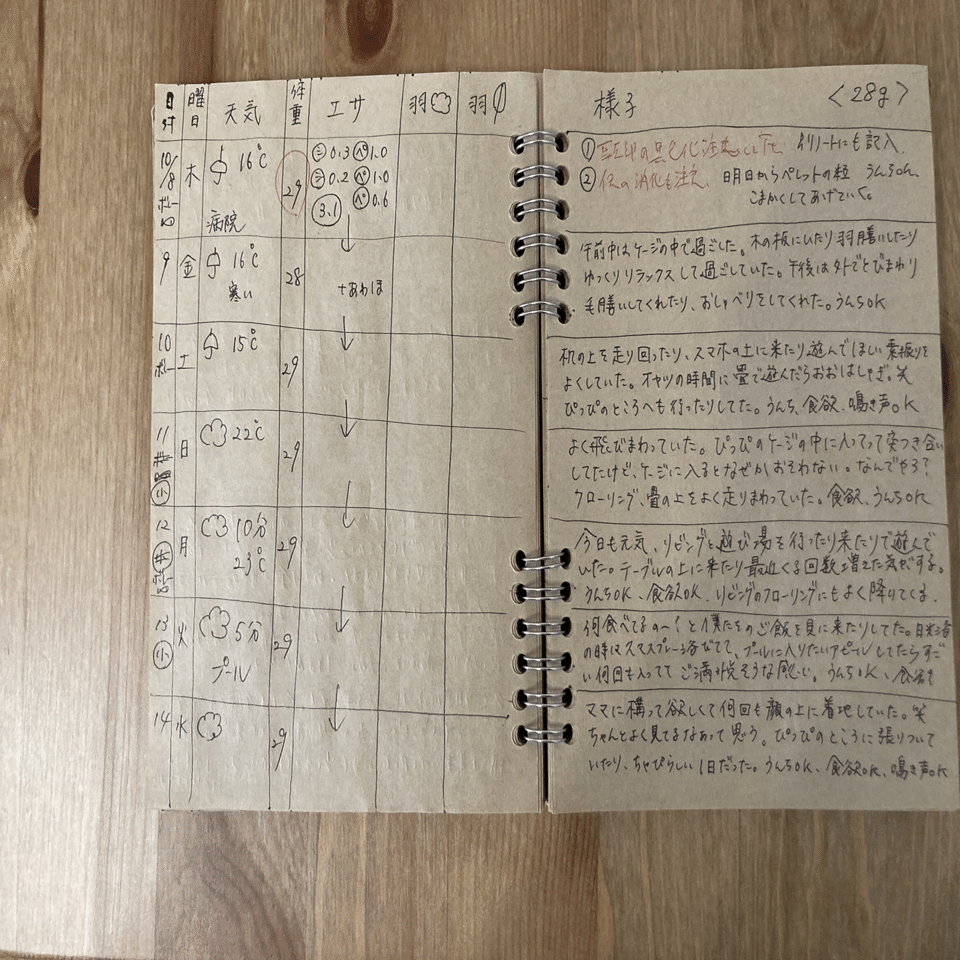 日付 曜日 天気 体重 エサ 羽 羽
様子 〈28g〉
10/8 木 16℃ 29 シ0.3 ペ1.0
シ0.2 ペ1.0
3.1 ペ0.6
病院
① にも記入、
② の消化も注意、明日からペレットの粒 うんちOK、
こまかくしてあげていく。
9 金 16℃ 28 +あわほ
寒い
午前中はケージの中で過ごした。木の板にいたり羽繕いしたり
ゆっくりリラックスして過ごしていた。午後は外でとびまわり
毛繕いしてくれたり、おしゃべりをしてくれた。うんちOK
10 土 15℃ 29
机の上を走り回ったり、スマホの上に来たり遊んでほしい素振りを
よくしていた。オヤツの時間に畳で遊んだらおおはしゃぎ。笑
ぴっぴのところへも行ったりしてた。うんち、食欲、鳴き声OK
11 日 22℃ 29
小
よく飛びまわっていた。ぴっぴのケージの中に入ってって突つき合い
してたけど、ケージに入るとなぜかおそわない。なんでやろ?
フローリング、畳の上をよく走りまわっていた。食欲、うんちOK
12 月 10分 29
23℃
今日も元気、リビングと遊び場を行ったり来たりで遊んで
いた。テーブルの上に来たり最近くる回数増えた気がする。
うんちOK、食欲OK、リビングのフローリングにもよく降りてくる、
13 火 5分 29
小 プール
何食べてるの〜?と僕たちのご飯を見に来たりしてた。日光浴
の時は浴びてて、プールに入りたいアピールしてたらすご
い何回も入ってて ご満悦そうな感じ。うんちOK、食欲
14 水 29
ママに構って欲しくて何回も顔の上に着地していた。笑
ちゃんとよく見てるなあって思う。ぴっぴのところに張りついて
いたり、ちゃぴらしい1日だった。うんちOK、食欲OK、鳴き声OK